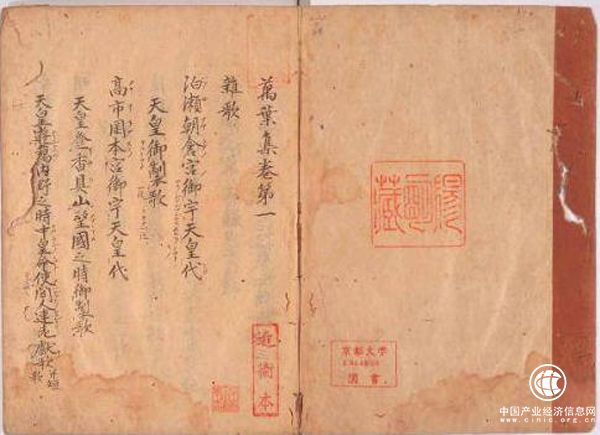 陽明藏
京都大学
圖書
萬葉集卷第一
雜歌
泊瀬朝倉宮御宇天皇代
天皇御製歌
高市岡本宮御宇天皇代
天皇登香具山望國之時御製歌
天皇遊獦内野之時中皇命使間人連老獻歌并短歌
近衛本
中国产业经济信息网
www.cinic.org.cn